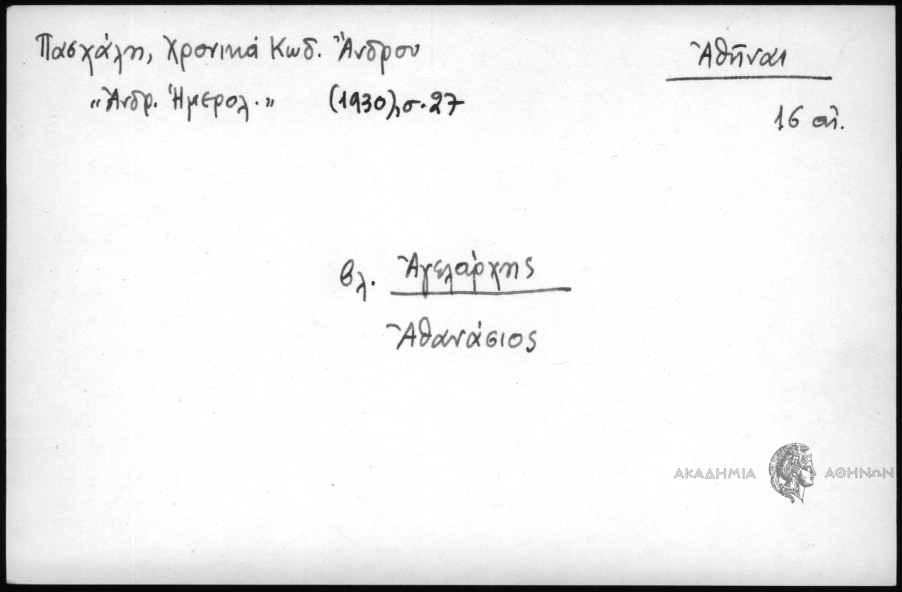 Πασχάλη, Χρονικά Κωδ. Ἄνδρου
"Ἀνδρ. Ἡμερολ." (1930), σ. 27
Ἀθῆναι
16 αἰ.
βλ. Ἀγελάρχης
Ἀθανάσιος
ΑΚΑΔΗΜΙΑ ΑΘΗΝΩΝ